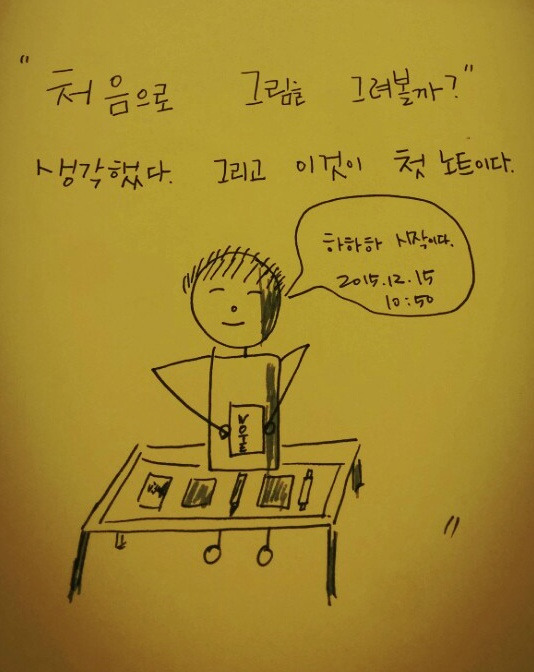 " 처음으로 그림을 그려볼까? "
생각했다. 그리고 이것이 첫 노트이다.
하하하 시작이다.
2015.12.15
10:50
NOTE
"